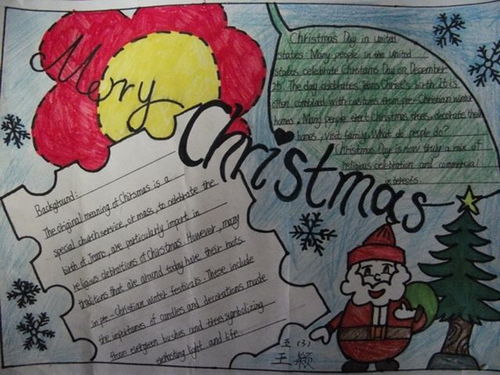 Merry
Christmas
Christmas Day in united
states. Many people in the united
states celebrate Christmas Day on December
25. The day celebrates Christ's birth. It is
often combined with customs from pre-Christian winter
Many people erect Christmas decorate their
visit family. What do people do?
Christmas Day is now truly a mix of
religious celebration and commercial
interests.
Background:
The original meaning of Christmas is a
special church service, or mass, to celebrate the
birth of particularly import in
religious celebrations of Christmas. However, many
traditions that are around today have their roots
in pre-Christian winter festivals. These include
the importance of candles and decorations made
from evergreen bushes and trees symbolising
light and life.
五(3)
王颖